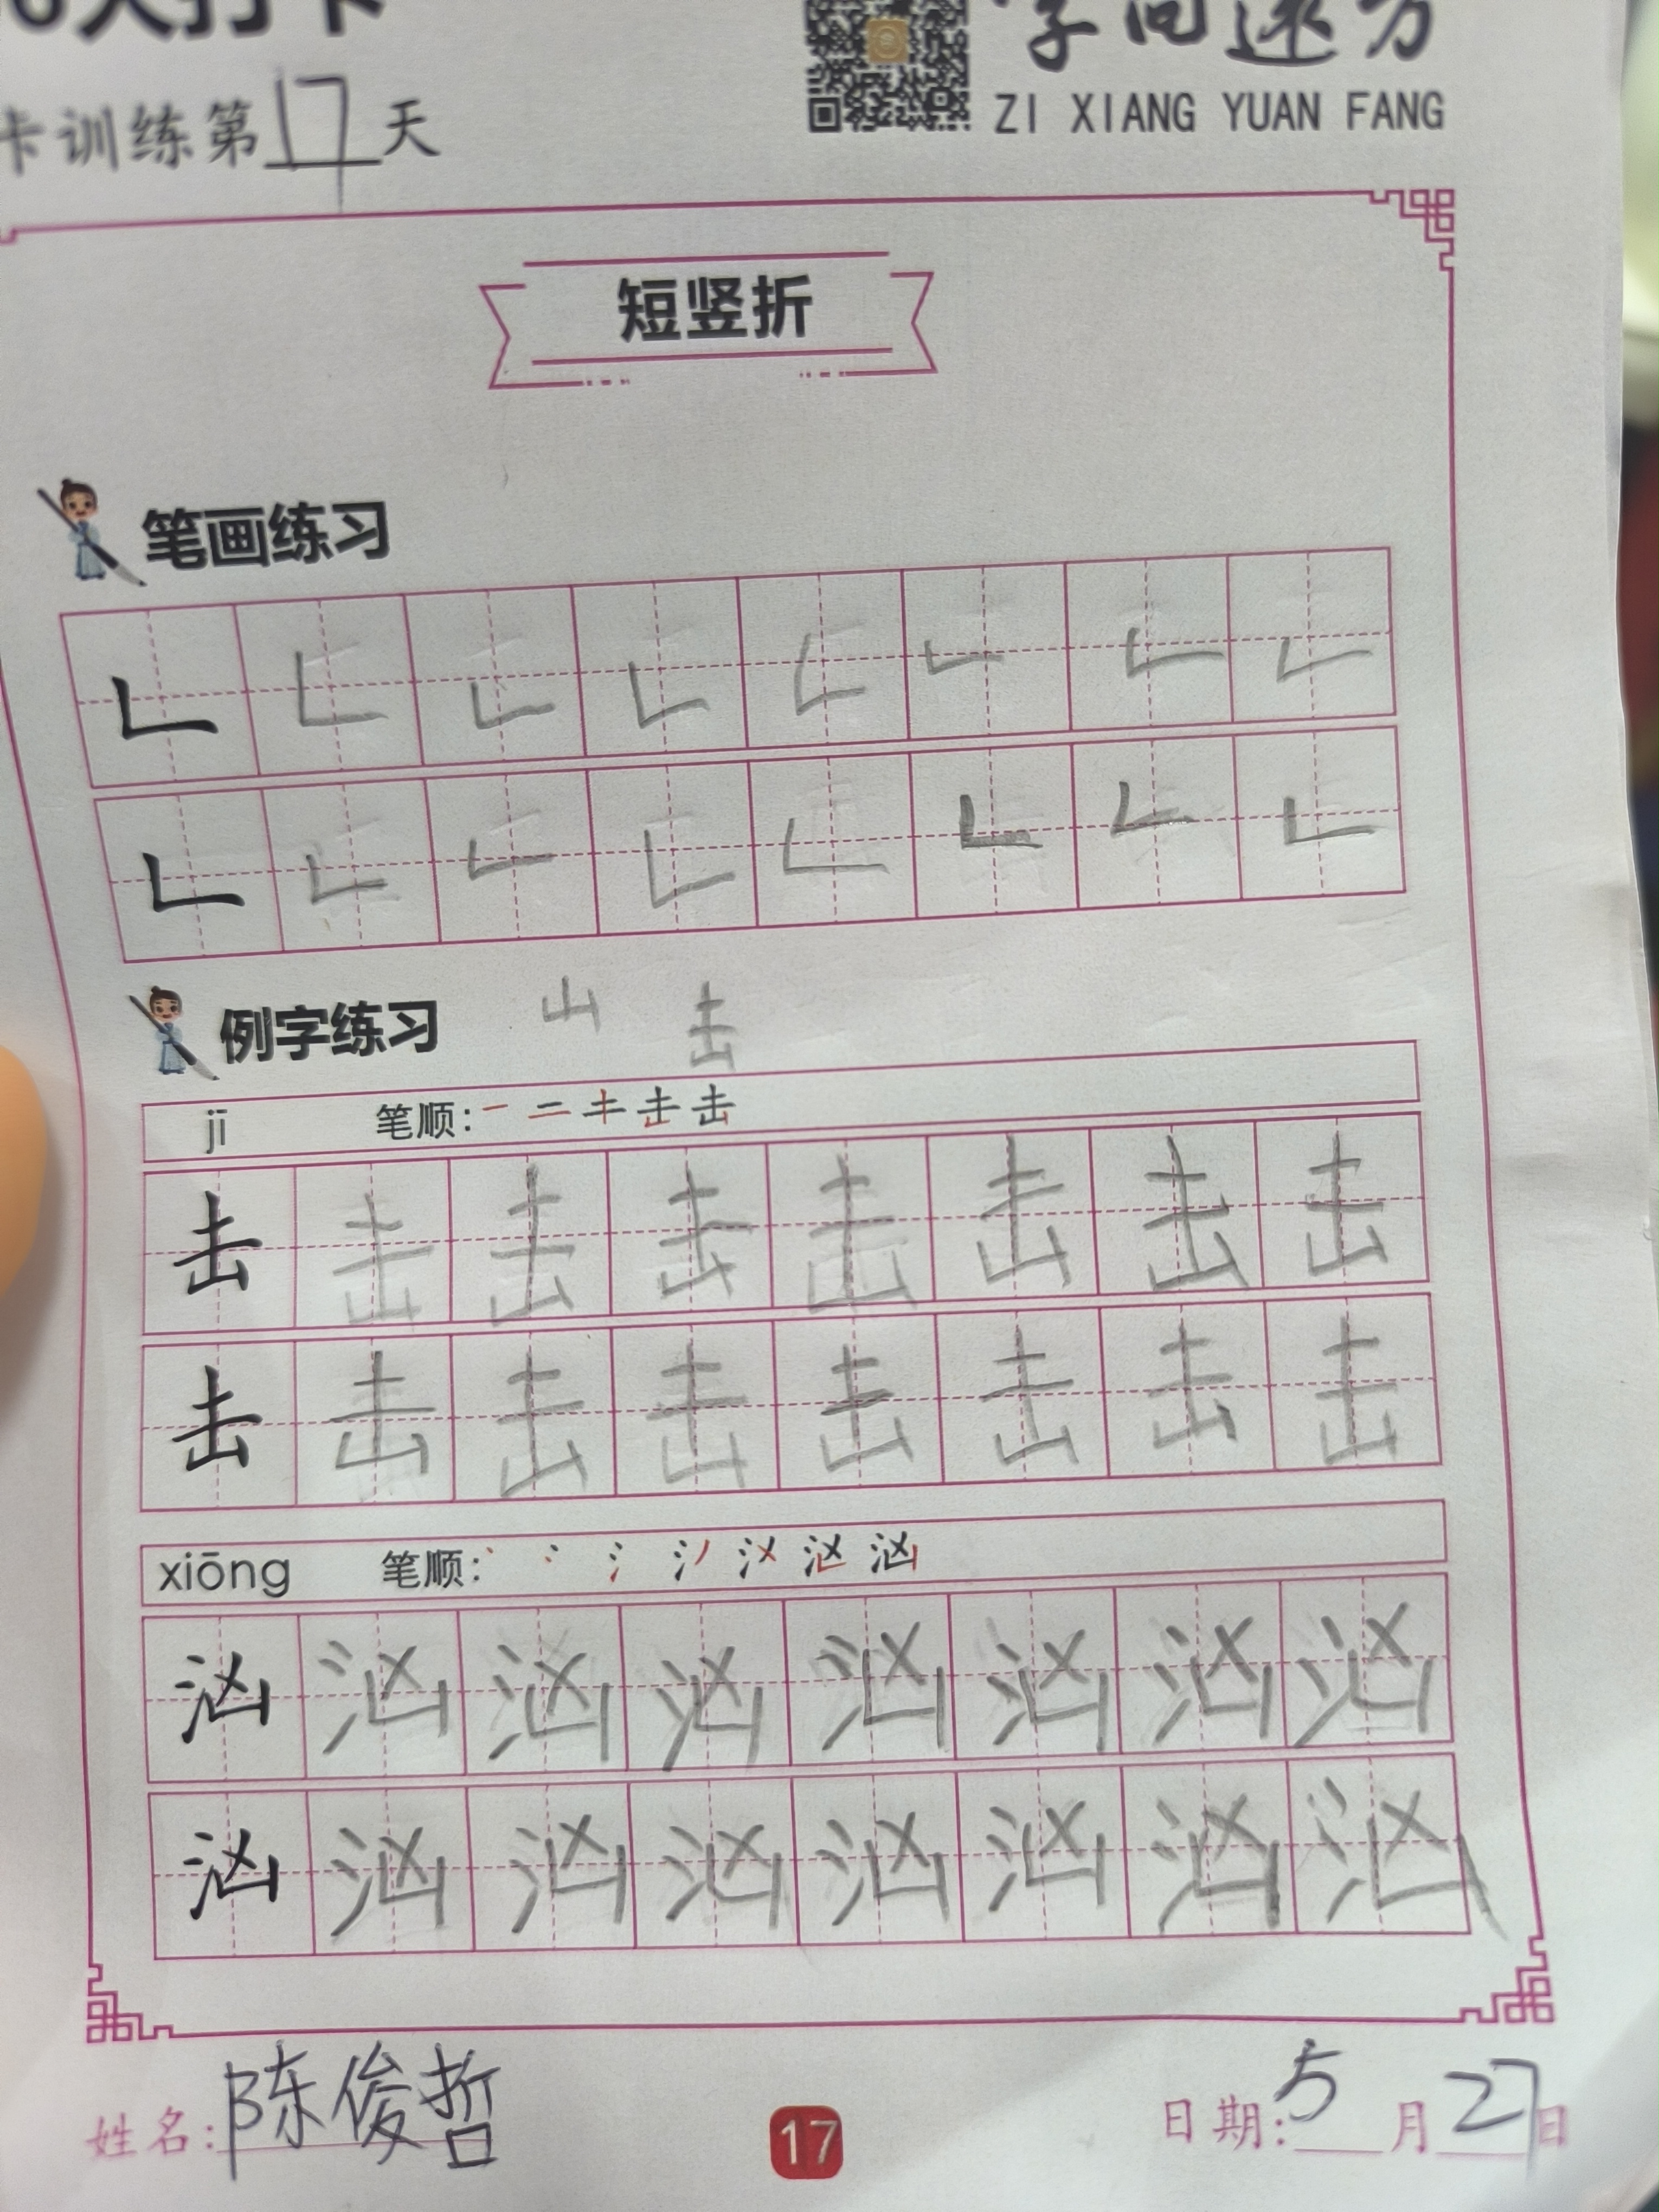 卡训练第17天
字向远方
ZI XIANG YUAN FANG
短竖折
笔画练习
例字练习
山 击
jī 笔顺:
击 击 击 击 击 击 击 击
击 击 击 击 击 击 击 击
xiōng 笔顺:
汹 汹 汹 汹 汹 汹 汹 汹
汹 汹 汹 汹 汹 汹 汹 汹
姓名:陈俊哲
17
日期:5月27日